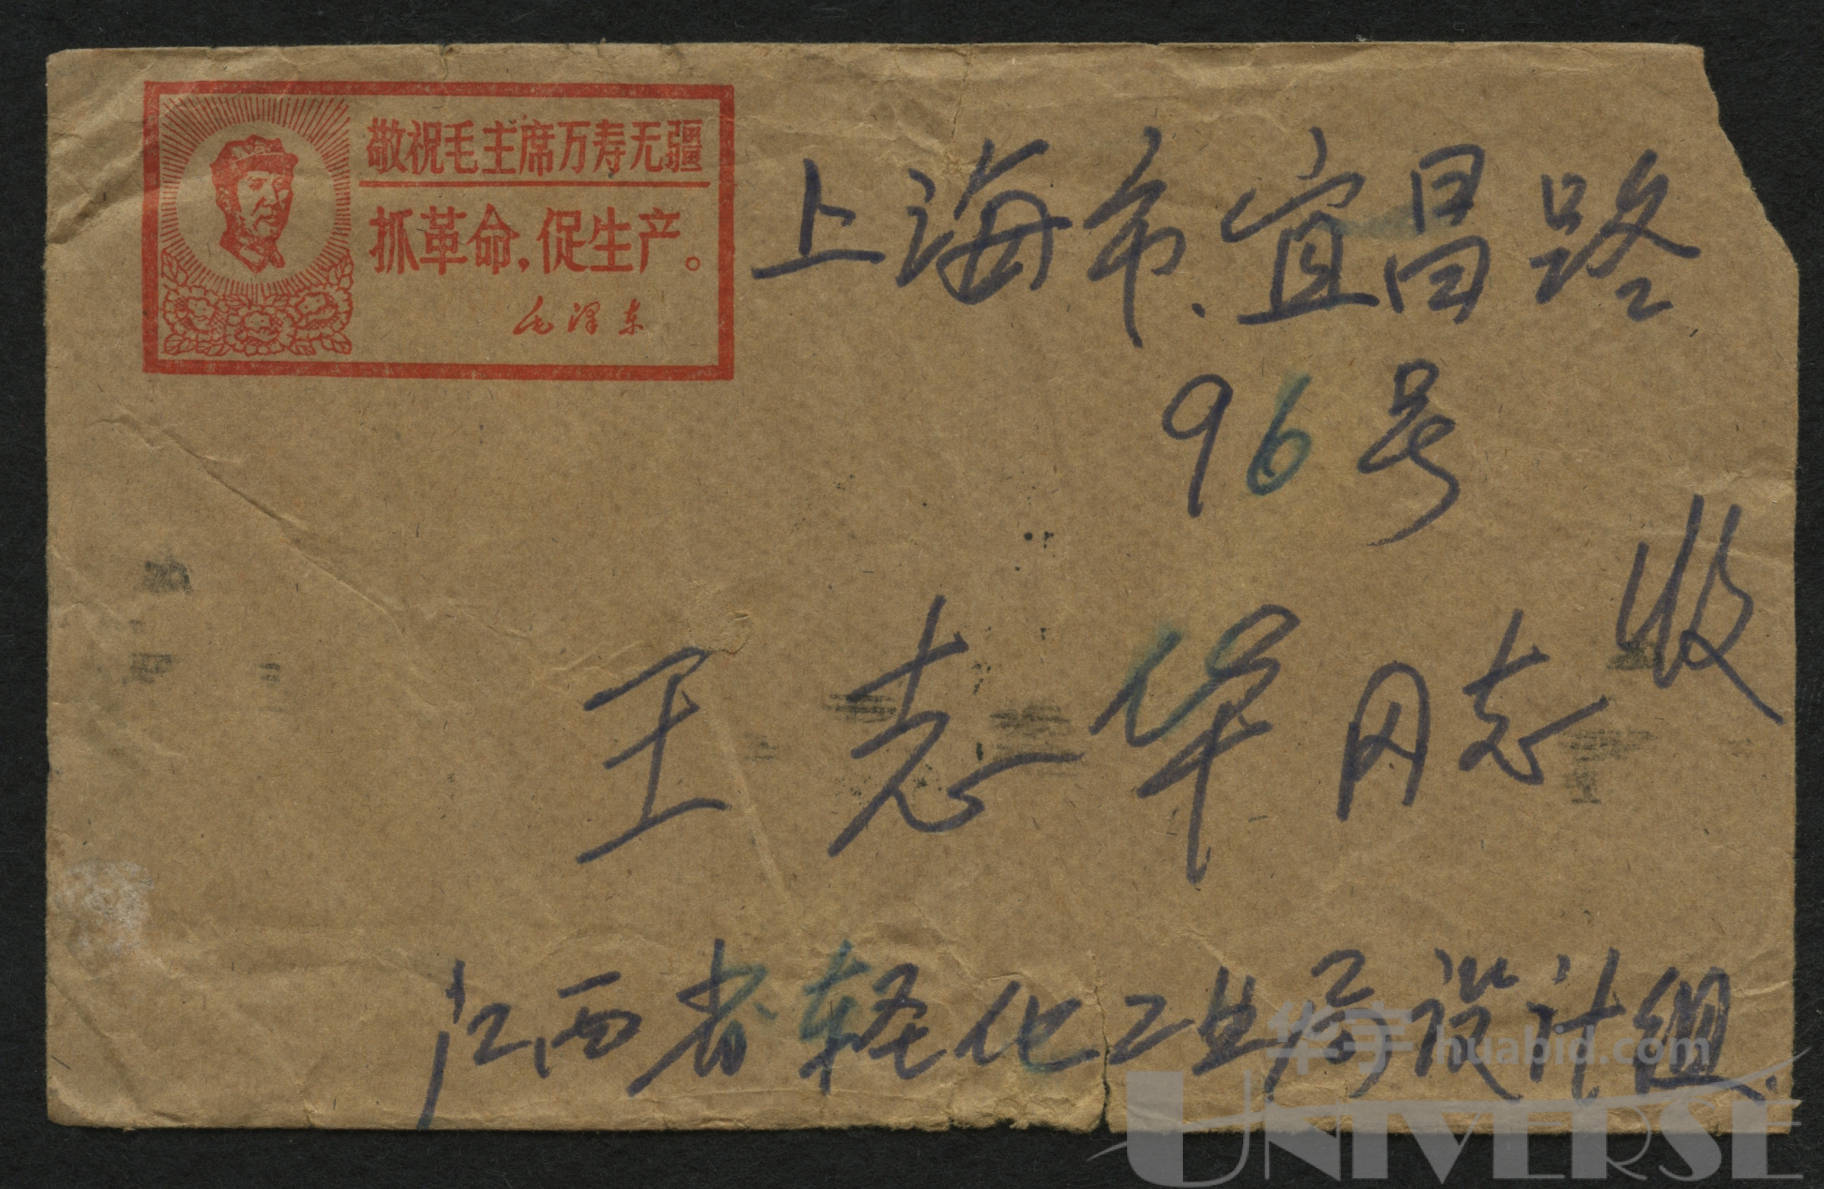 敬祝毛主席万寿无疆
抓革命，促生产。
毛泽东
上海市.宜昌路
96号
王志华同志 收
江西省轻化工业局设计组.
华宇 huabid.com
UNIVERSE